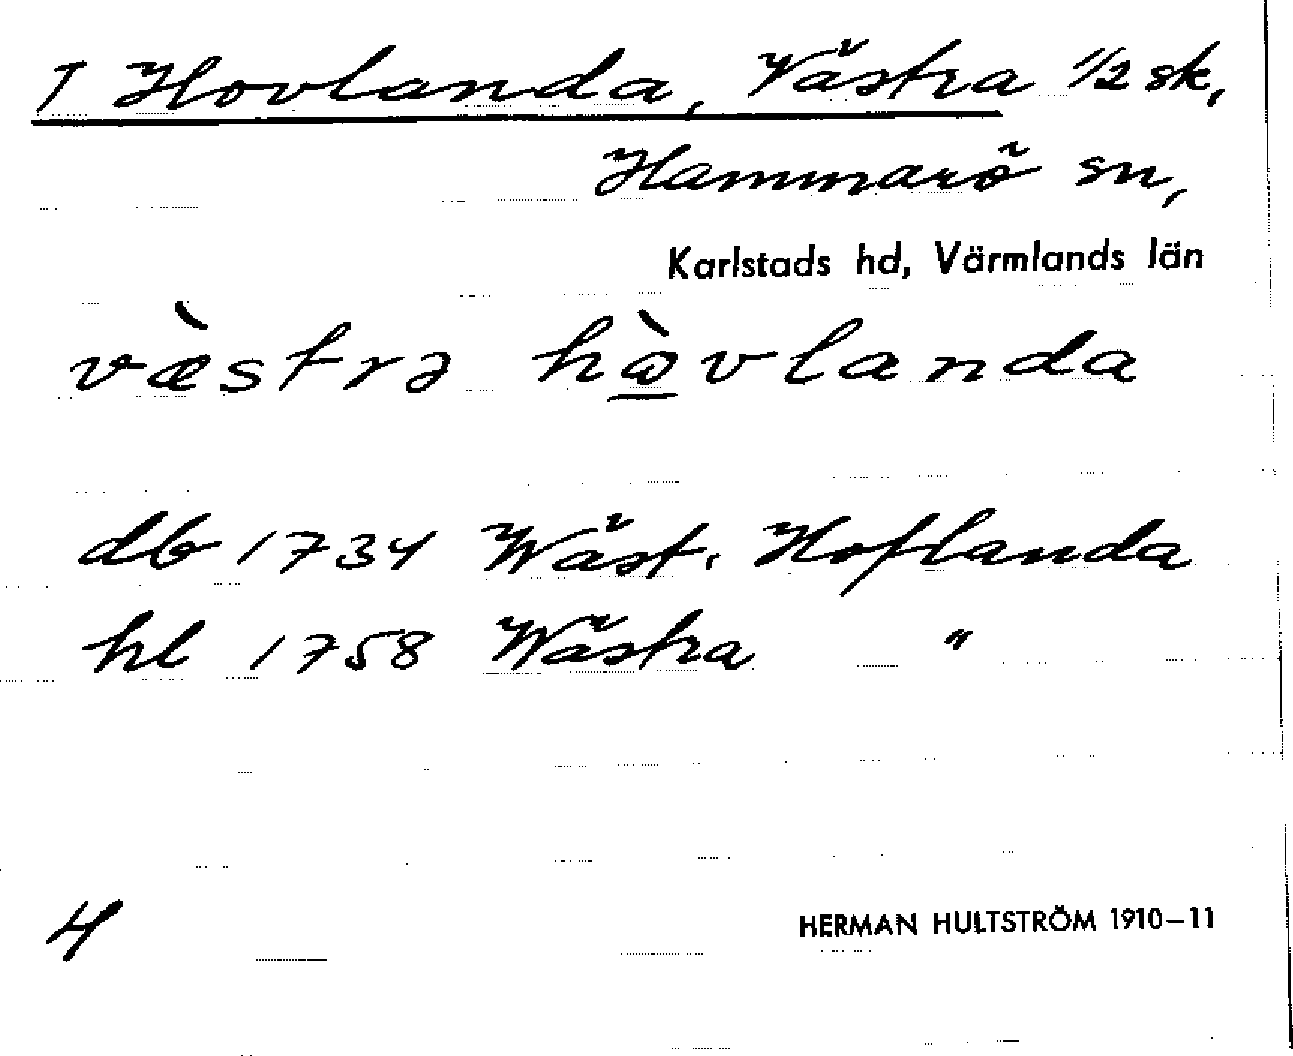 T Hovlanda, Västra 1/2 sk,
Hammarö sn,
Karlstads hd, Värmlands län
væ̀strə hὼ̲vlanda
db 1734 Wäst. Hoflanda
hl 1758 Wästra "
4
HERMAN HULTSTRÖM 1910–11